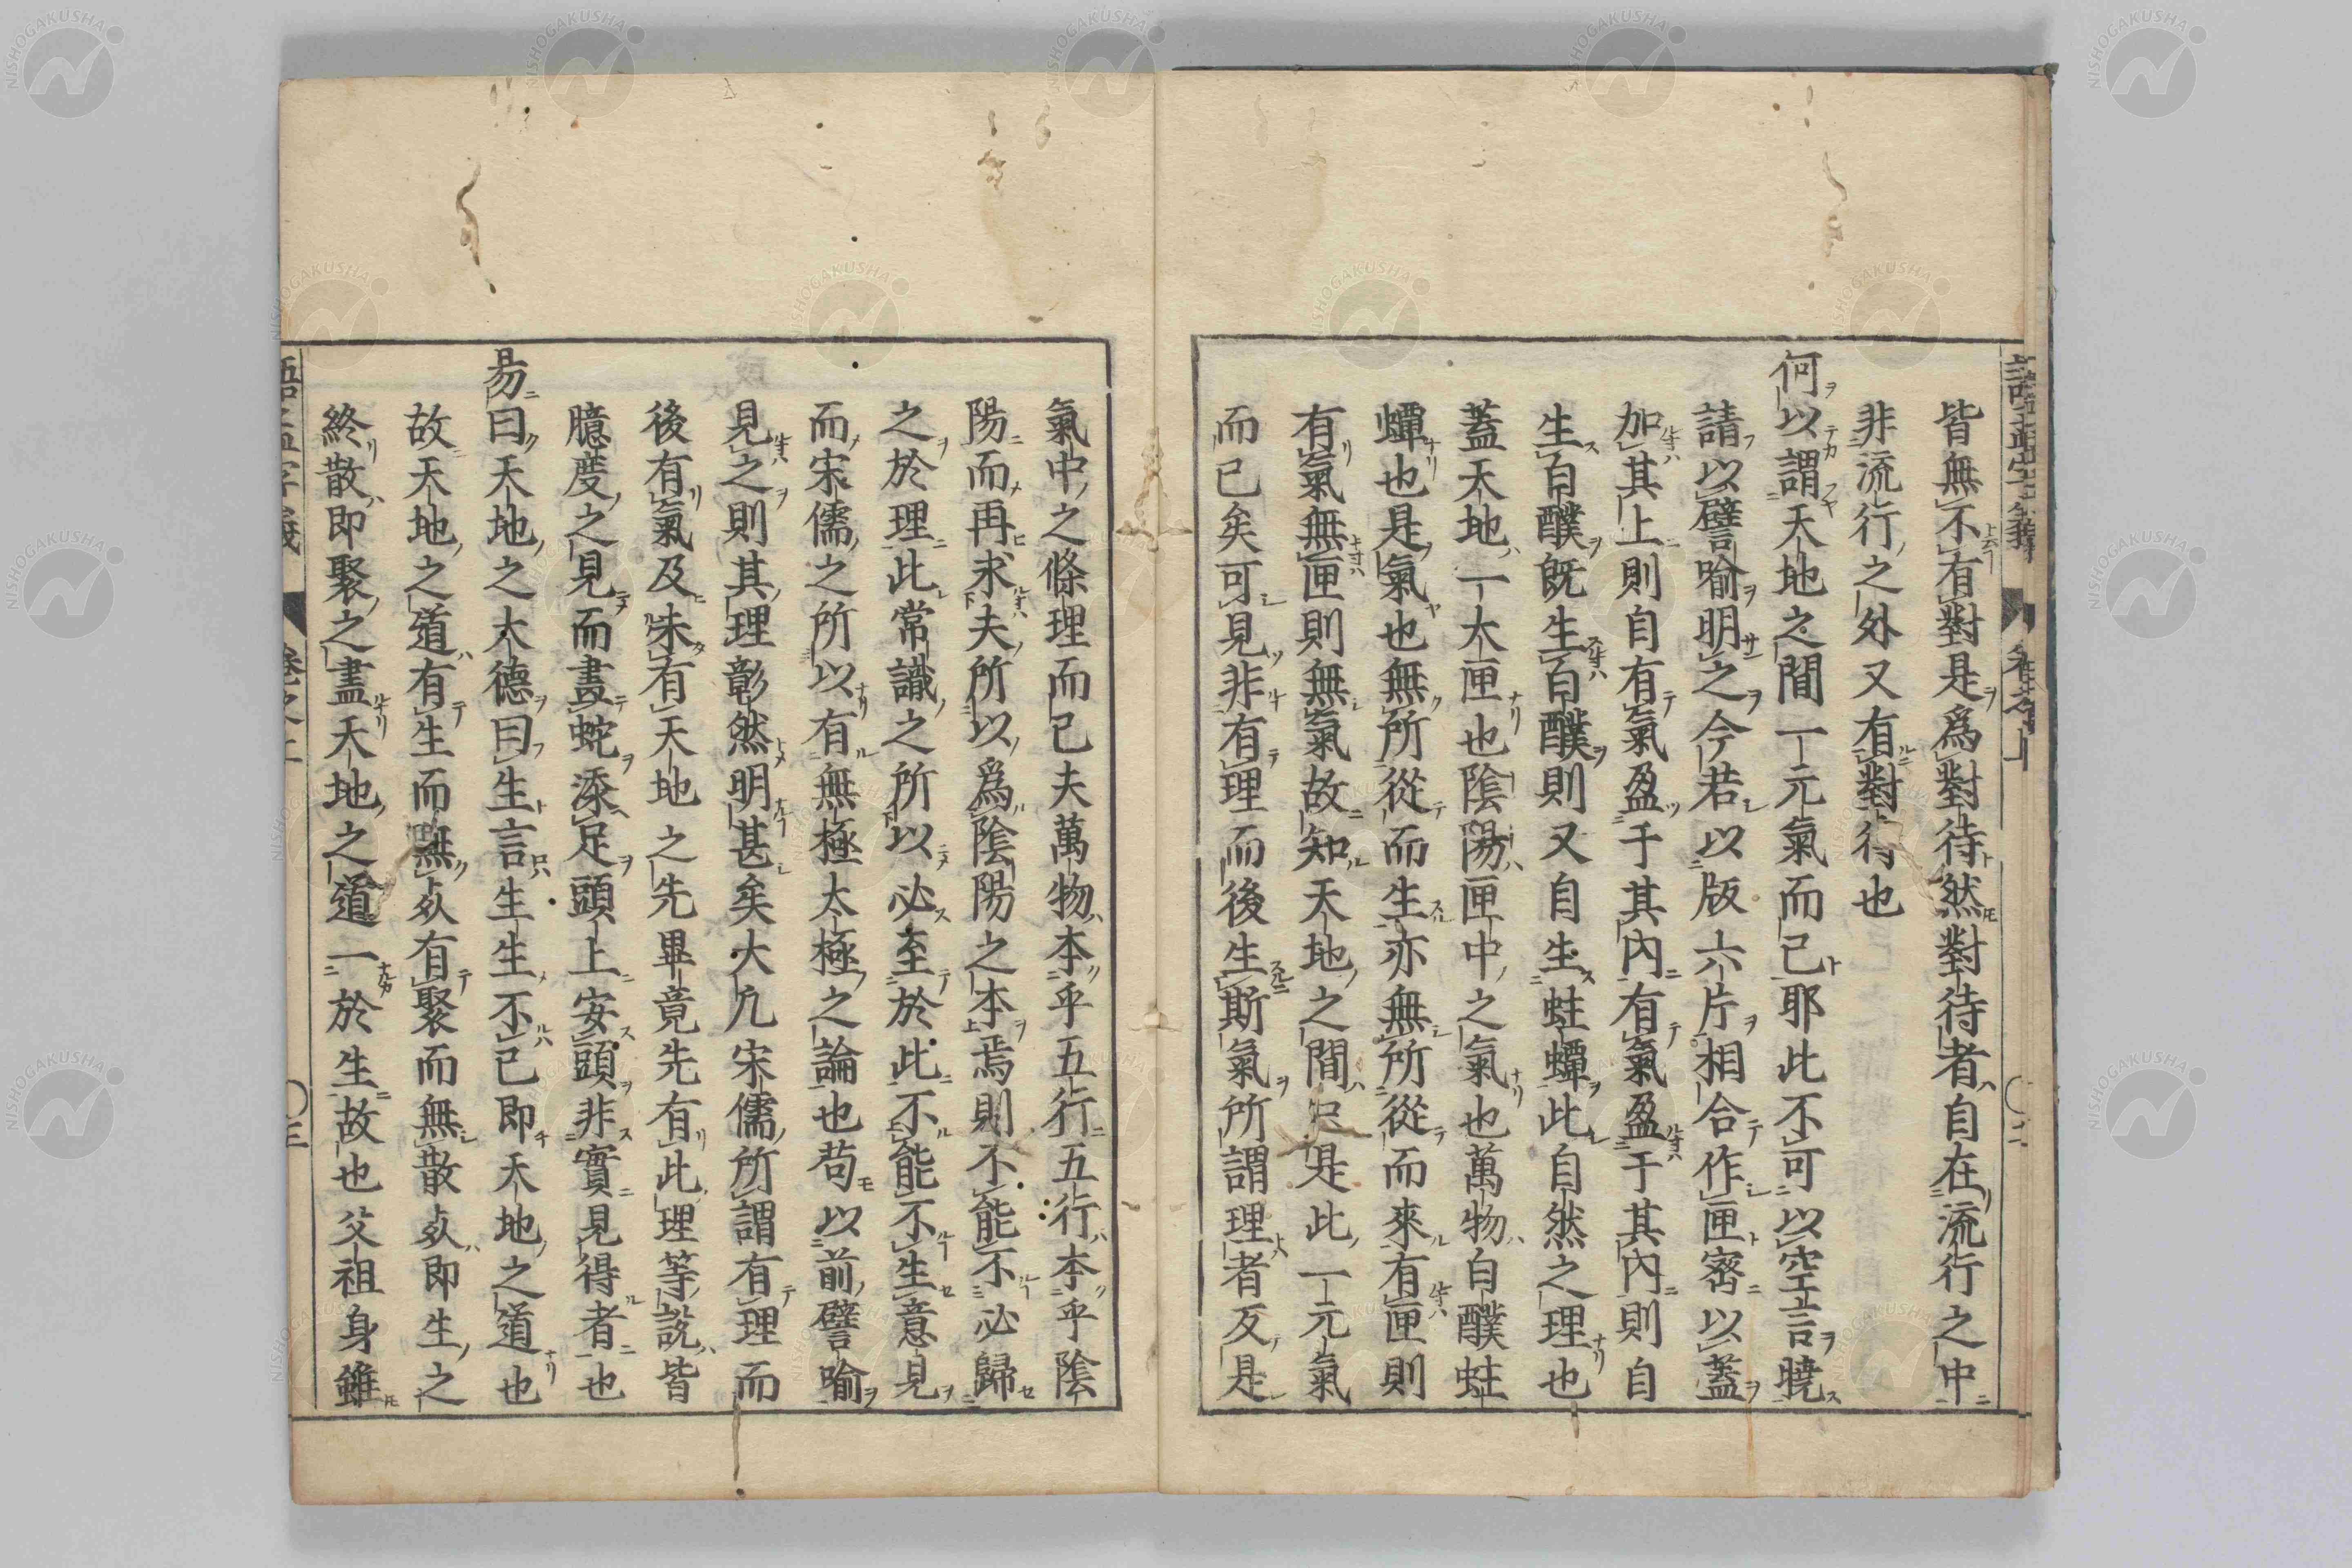 皆無不有對是爲對待然對待者自在流行之中
非流行之外又有對待也
何以謂天地之間一元氣而已耶此不可以空言曉
請以譬喻明之今若以版六片相合作匣密以蓋
加其上則自有氣盈于其內有氣盈于其內則自
生白醭既生白醭則又自生蛀蟫此自然之理也
蓋天地一大匣也陰陽匣中之氣也萬物白醭蛀
蟫也是氣也無所從而生亦無所從而來有匣則
有氣無匣則無氣故知天地之間只是此一元氣
而已矣可見非有理而後生斯氣所謂理者反是
氣中之條理而已夫萬物本乎五行五行本乎陰
陽而再求夫所以爲陰陽之本焉則不能不必歸
之於理此常識之所以必至於此不能不生意見
而宋儒之所以有無極太極之論也苟以前譬喻
見之則其理彰然明甚矣大凡宋儒所謂有理而
後有氣及未有天地之先畢竟先有此理等說皆
臆度之見而畫蛇添足頭上安頭非實見得者也
易曰天地之大德曰生言生生不已即天地之道也
故天地之道有生而無死有聚而無散死即生之
終散即聚之盡天地之道一於生故也父祖身雖
語孟字義 卷之上 〇二
語孟字義 卷之上 〇三
NISHOGAKUSHA